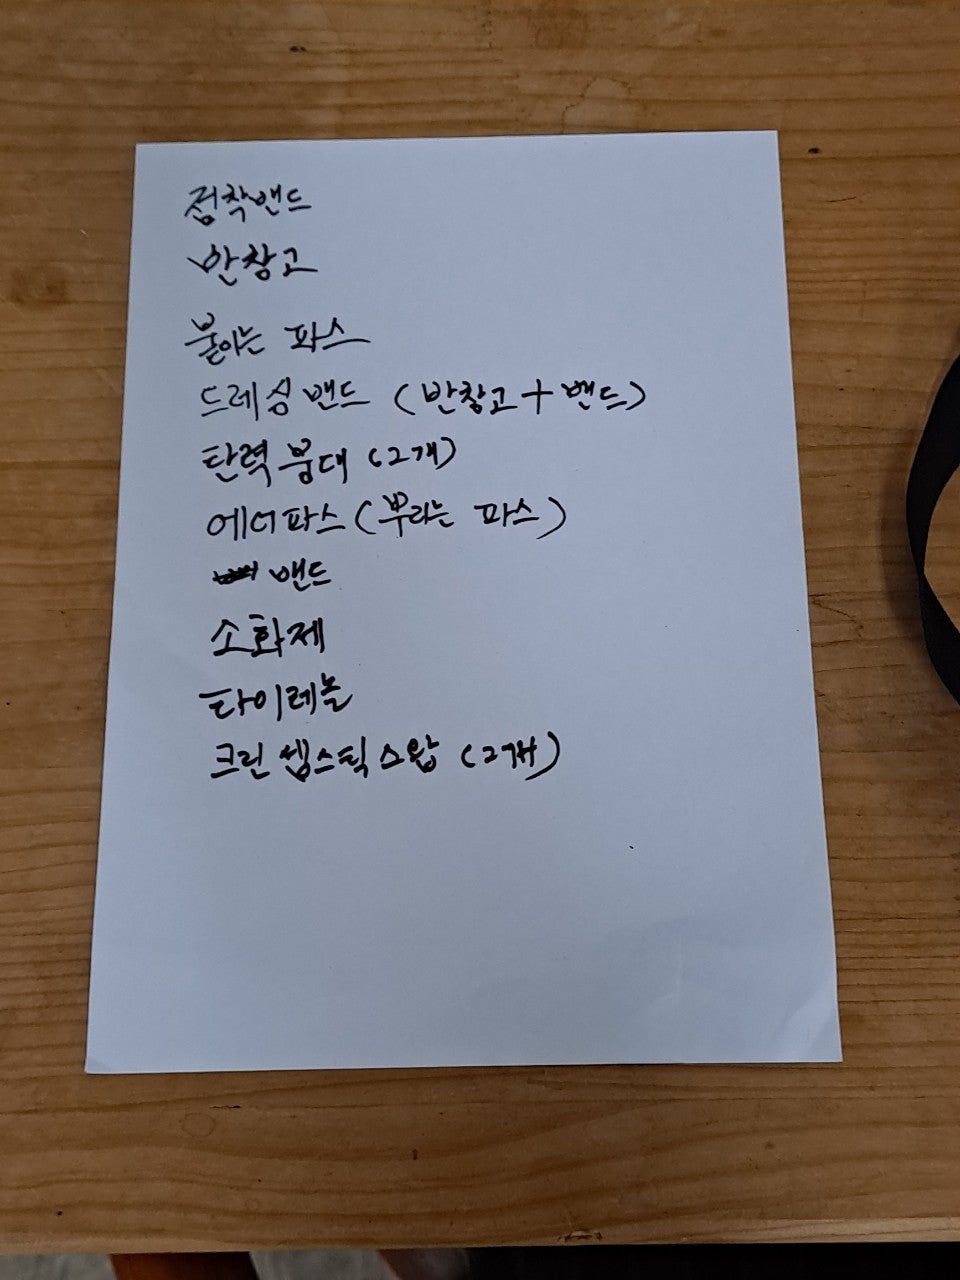 점착밴드
반창고
붙이는 파스
드레싱 밴드 (반창고+밴드)
탄력 붕대 (2개)
에어파스 (뿌리는 파스)
밴드
소화제
타이레놀
크린 셉스틱 스왑 (2개)